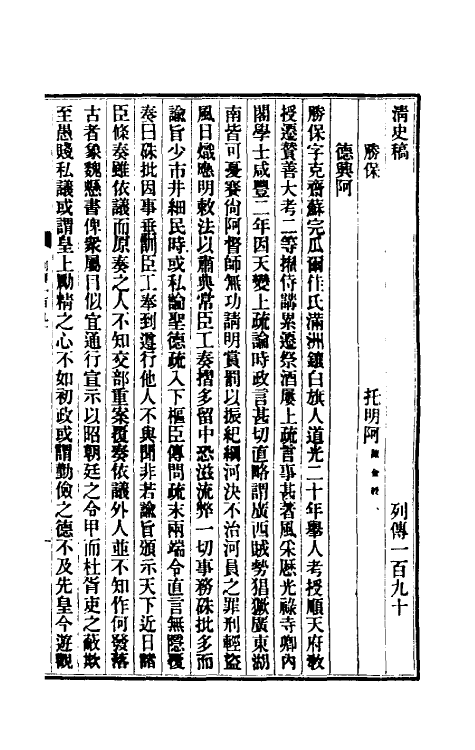 清史稿 列傳一百九十
勝保 托明阿 陳金綬
德興阿
勝保字克齋蘇完瓜爾佳氏滿洲鑲白旗人道光二十年舉人考授順天府教
授遷贊善大考二等擢侍講累遷祭酒屢上疏言事甚著風采歷光祿寺卿內
閣學士咸豐二年因天變上疏論時政言甚切直略謂廣西賊勢猖獗廣東湖
南皆可憂賽尚阿督師無功請明賞罰以振紀綱河決不治河員之罪刑輕盜
風日熾應明敕法以肅典常臣工奏摺多留中恐滋流弊一切事務硃批多而
諭旨少市井細民時或私論聖德疏入下樞臣傳問疏末兩端令直言無隱覆
奏曰硃批因事垂訓臣工奉到遵行他人不與聞非若諭旨頒示天下近日諸
臣條奏雖依議而原奏之人不知交部重案覆奏依議外人並不知作何發落
古者象魏懸書俾眾屬目似宜通行宣示以昭朝廷之令甲而杜胥吏之蔽欺
至愚賤私議或謂皇上勵精之心不如初政或謂勤儉之德不及先皇今遊觀